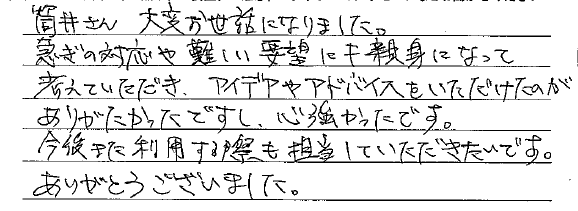 筒井さん 大変お世話になりました。
急ぎの対応や難しい要望にも親身になって
考えていただき、アイデアやアドバイスをいただけたのが
ありがたかったですし、心強かったです。
今後また利用する際も担当していただきたいです。
ありがとうございました。